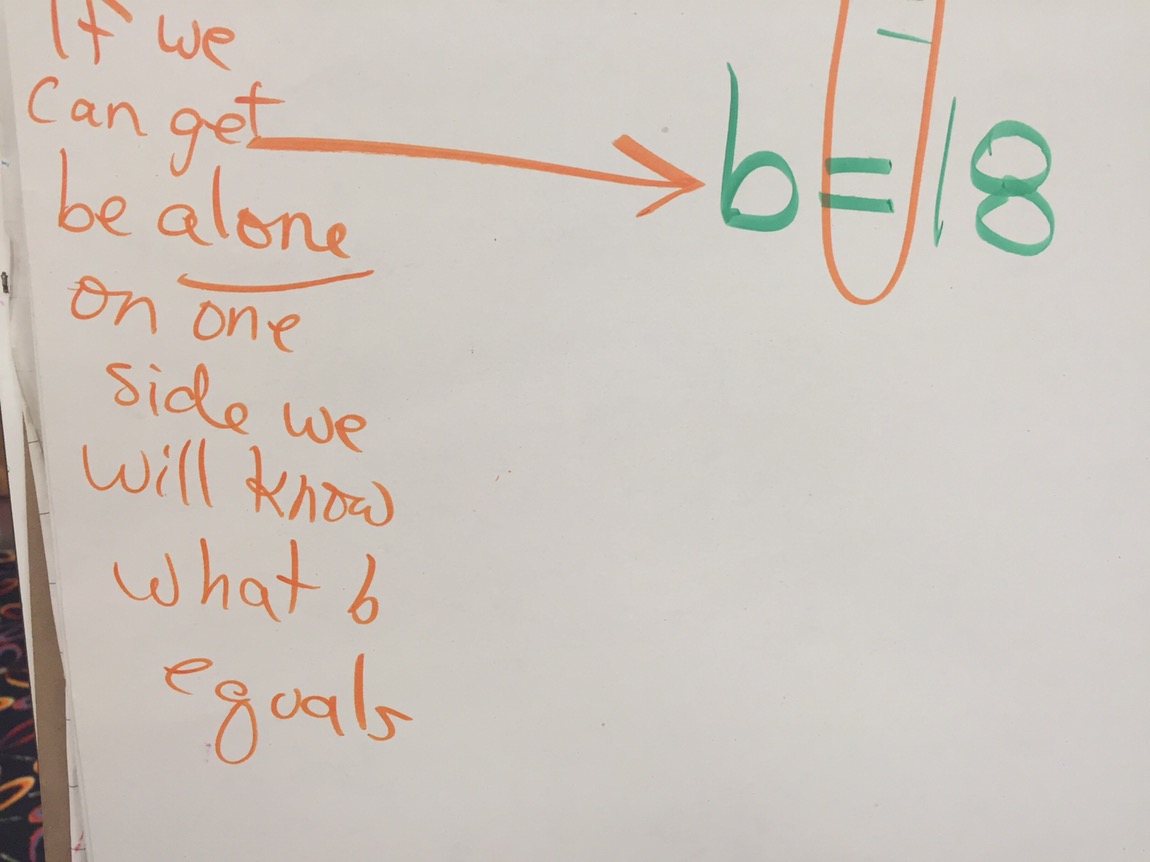 If we
can get
b = 18
be alone
on one
side we
will know
what b
equals